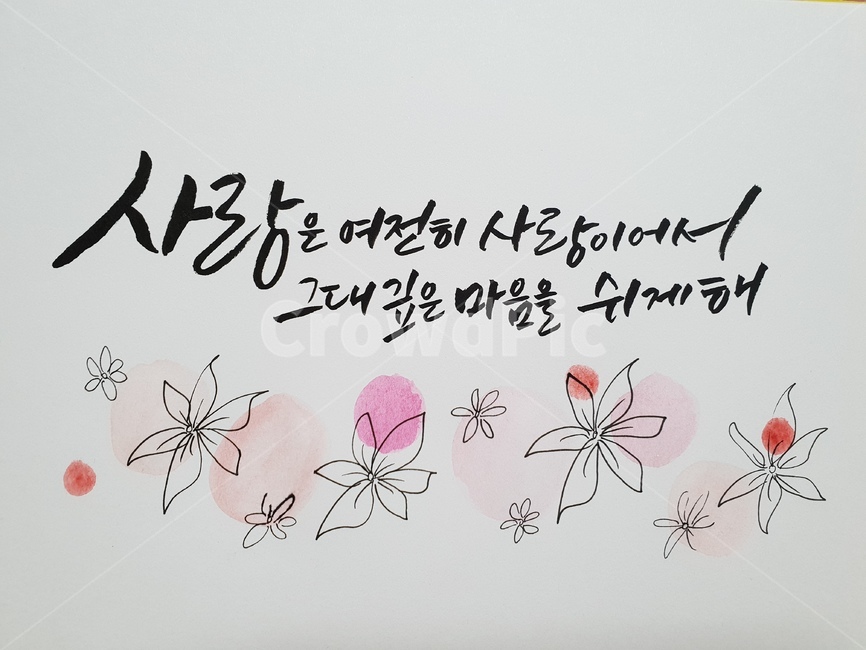 사랑은 여전히 사랑이어서
그대 깊은 마음을 쉬게해
CrowdPic